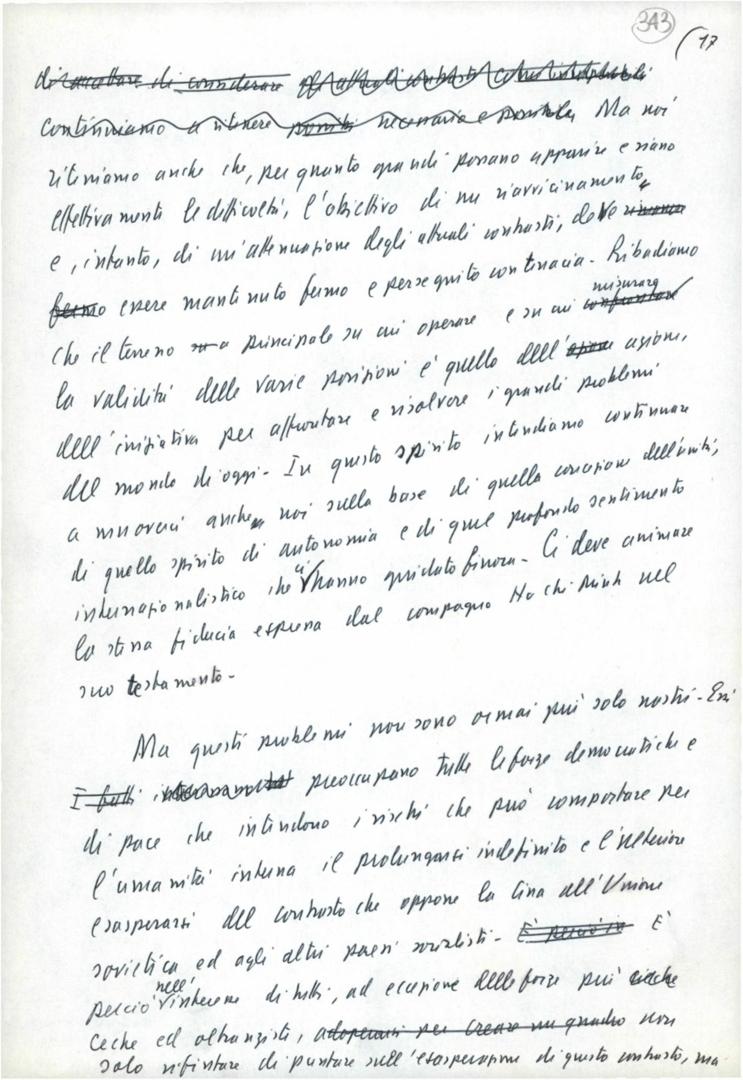 343
17
di accettare di considerare gli attuali contrasti
Continuiamo a ritenere possibi necessaria e possibile Ma noi
riteniamo anche che, per quanto grandi possano apparire e siano
effettivamente le difficoltà, l'obiettivo di un riavvicinamento,
e, intanto, di un'attenuazione degli attuali contrasti, deve rimanere
fermo essere mantenuto fermo e perseguito con tenacia - Ribadiamo
misurare
che il terreno principale su cui operare e su cui confrontare
la validità delle varie posizioni è quello dell' azione,
dell'iniziativa per affrontare e risolvere i grandi problemi
del mondo di oggi - In questo spirito intendiamo continuare
a muoverci anche noi sulla base di quella concezione dell'unità,
di quello spirito di autonomia e di quel profondo sentimento
internazionalistico che ci hanno guidato finora - Ci deve animare
la stessa fiducia espressa dal compagno Ho Chi Minh nel
suo testamento -
Ma questi problemi non sono ormai più solo nostri - Essi
I fatti preoccupano tutte le forze democratiche e
di pace che intendono i rischi che può comportare per
l'umanità intera il prolungarsi indefinito e l'ulteriore
esasperarsi del contrasto che oppone la Cina all'Unione
sovietica ed agli altri paesi socialisti - È perciò in È
nell'
perciò interesse di tutti, ad eccezione delle forze più cieche
ceche ed oltranziste, adoperarsi per creare un quadro non
solo rifiutare di puntare sull'esasperazione di questo contrasto, ma